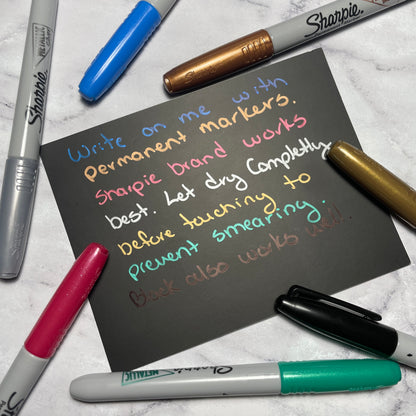 Sharpie
METALLIC
Sharpie
Write on me with
permanent markers.
Sharpie brand works
best. Let dry Completly
before touching to
prevent smearing.
Black also works well.
Sharpie
METALLIC